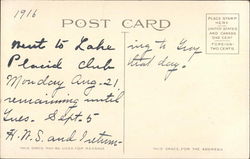 1916
POST CARD
PLACE STAMP
HERE
UNITED STATES
AND CANADA
ONE CENT
FOREIGN
TWO CENTS
Went to Lake
Placid Club
Monday Aug. 21
remaining until
Tues. Sept. 5
H.W.S. and I return-
ing to Troy
that day.
THIS SPACE MAY BE USED FOR MESSAGE
THIS SPACE FOR THE ADDRESS